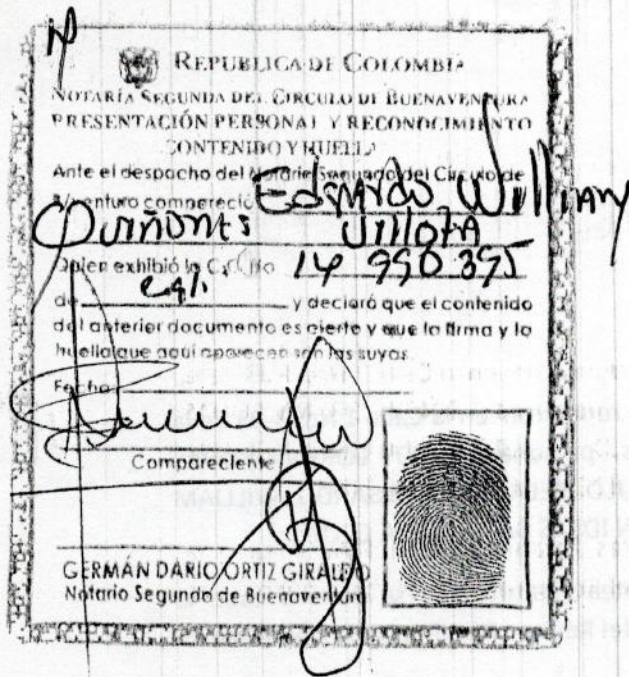 REPUBLICA DE COLOMBIA
NOTARÍA SEGUNDA DEL CIRCULO DE BUENAVENTURA
PRESENTACIÓN PERSONAL Y RECONOCIMIENTO
CONTENIDO Y HUELLA
Ante el despacho del Notario Segundo del Circulo de
B/ventura compareció Edgardo William
Quiñones Villota
Quien exhibió la C.C. No 14 990 395
de Cali y declaró que el contenido
del anterior documento es cierto y que la firma y la
huella que aquí aparecen son las suyas.
Fecha
Compareciente
GERMÁN DARIO ORTIZ GIRALDO
Notario Segundo de Buenaventura